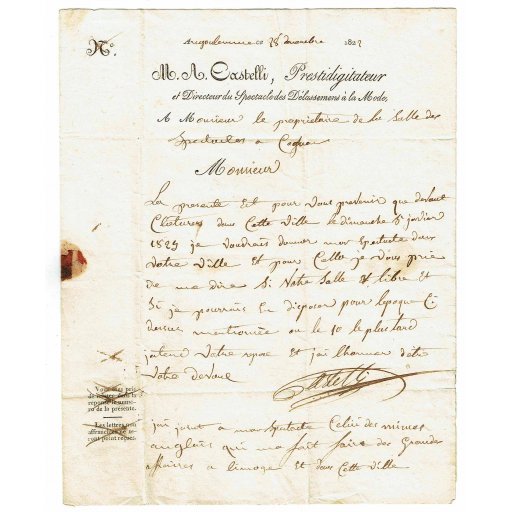 N.º
angoulesme ce 28 decembre 1822
M. A. Castelli, Prestidigitateur
et Directeur du Spectacle des Délassemens à la Mode,
A Monsieur le propriétaire de la Salle des
Spectacles a
Monsieur
La presente Est pour vous prevenir que devant
Cloturer dans Cette Ville le dimanche 5 janvier
1823 je voudrais donner mon Spectacle dans
Votre Ville Et pour Cette je vous prie
de me dire Si Votre Salle Est libre Et
Si je pourrais En disposer pour lepoque Ci
dessus mentionnée ou le 10 le plus tard
jattend Votre repose Et jai lhonneur detre
Votre devoué
Castelli
Vous êtes prié
de relater dans la
réponse le numé-
ro de la présente.
Les lettres non
affranchies ne se-
ront point reçues.
jai joint a mon Spectacle Celui des mimes
anglais qui ma fait faire des Grandes
affaires a limoge Et dans Cette Ville